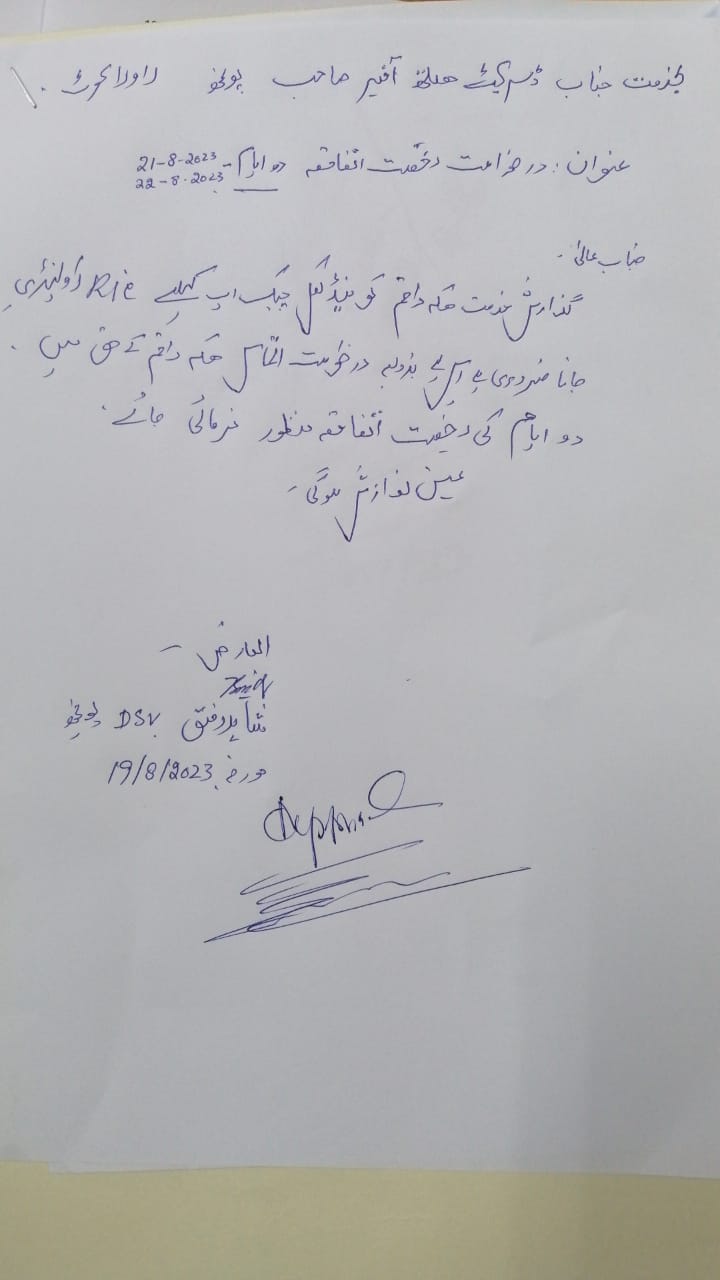 بخدمت جناب ڈسٹرکٹ ہیلتھ آفیسر صاحب پونچھ راولاکوٹ .
عنوان : درخواست رخصت اتفاقیہ دو ایام - 21-8-2023
22-8-2023
جناب عالی -
گذارش خدمت ھیکہ راقم کو میڈیکل چیک اپ کیلیے راولپنڈی
جانا ضروری ہے اس لیے بذریعہ درخواست التماس ھیکہ راقم کے حق میں .
دو ایام کی رخصت اتفاقیہ منظور فرمائی جائے .
عین نوازش ہوگی -
العارض -
DSV پونچھ
مورخہ 19/8/2023